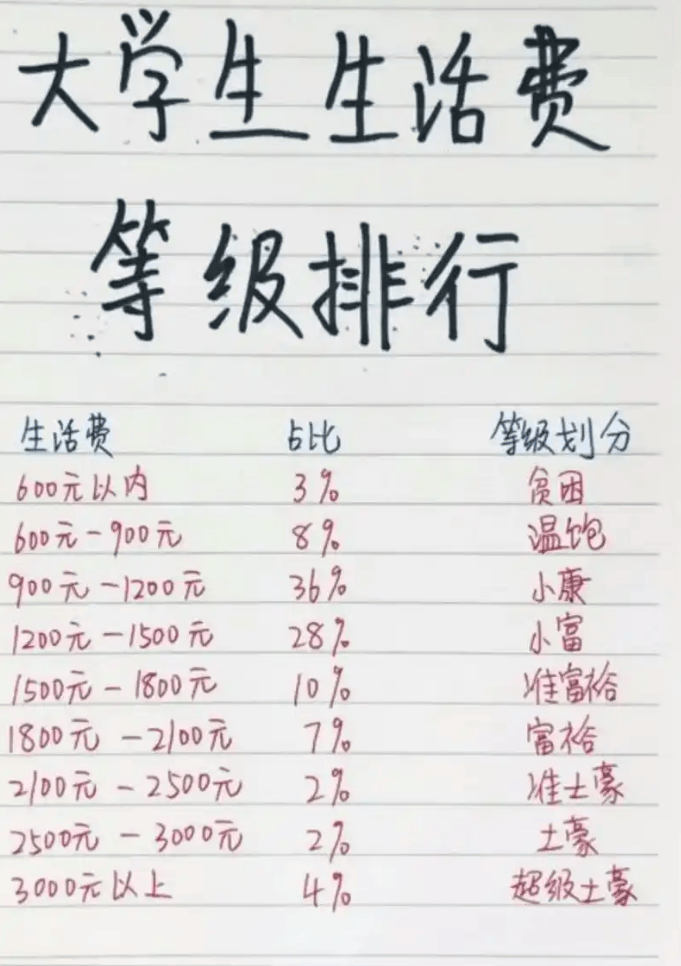 大学生生活费
等级排行
生活费 占比 等级划分
600元以内 3% 贫困
600元-900元 8% 温饱
900元-1200元 36% 小康
1200元-1500元 28% 小富
1500元-1800元 10% 准富裕
1800元-2100元 7% 富裕
2100元-2500元 2% 准土豪
2500元-3000元 2% 土豪
3000元以上 4% 超级土豪